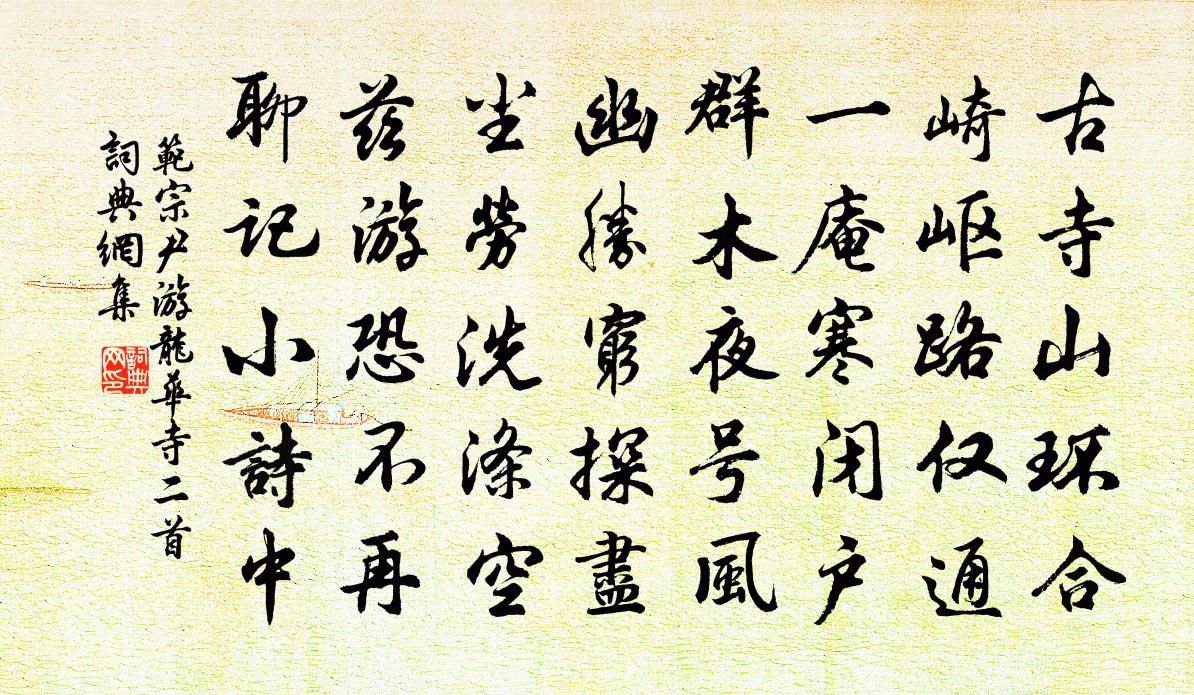 古寺山环合
崎岖路仅通
一庵寒闭户
群木夜号風
幽勝窮探盡
坐劳洗涤空
兹游恐不再
聊记小詩中
範宗尹游龍華寺二首
詞典網集
詞典
网印